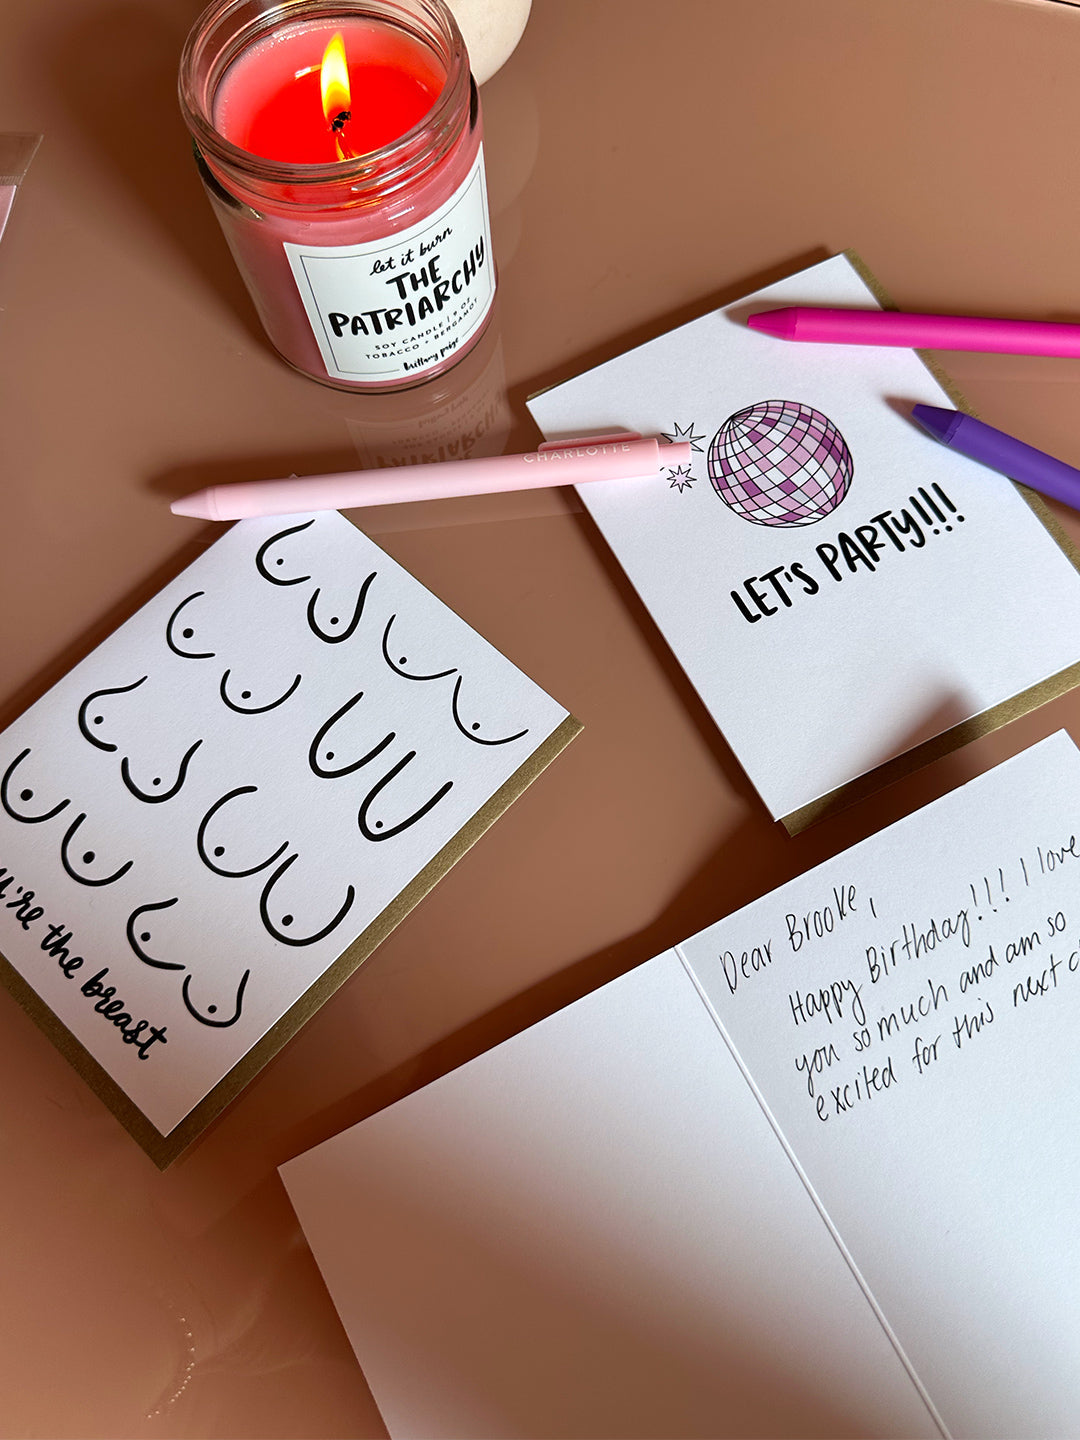 let it burn
THE
PATRIARCHY
SOY CANDLE | 9 OZ
TOBACCO + BERGAMOT
brittany paige
CHARLOTTE
LET'S PARTY!!!
u're the breast
Dear Brooke,
Happy Birthday!!! I love
you so much and am so
excited for this next